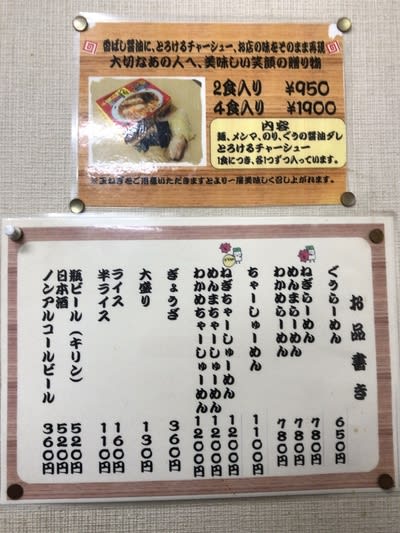 香ばし醤油に、とろけるチャーシュー、お店の味をそのまま再現
大切なあの人へ、美味しい笑顔の贈り物
2食入り ¥950
4食入り ¥1900
内容
麺、メンマ、のり、ぐうの醤油ダレ
とろけるチャーシュー
1食につき、各1つずつ入っています。
※玉ねぎをご用意いただきますとより一層美味しく召し上がれます。
お品書き
ぐうらーめん 650円
ねぎらーめん 780円
めんまらーめん 780円
わかめらーめん 780円
ちゃーしゅーめん 1100円
ねぎちゃーしゅーめん 1200円
めんまちゃーしゅーめん 1200円
わかめちゃーしゅーめん 1200円
ぎょうざ 360円
大盛り 130円
ライス 160円
半ライス 110円
瓶ビール（キリン） 520円
日本酒 520円
ノンアルコールビール 360円